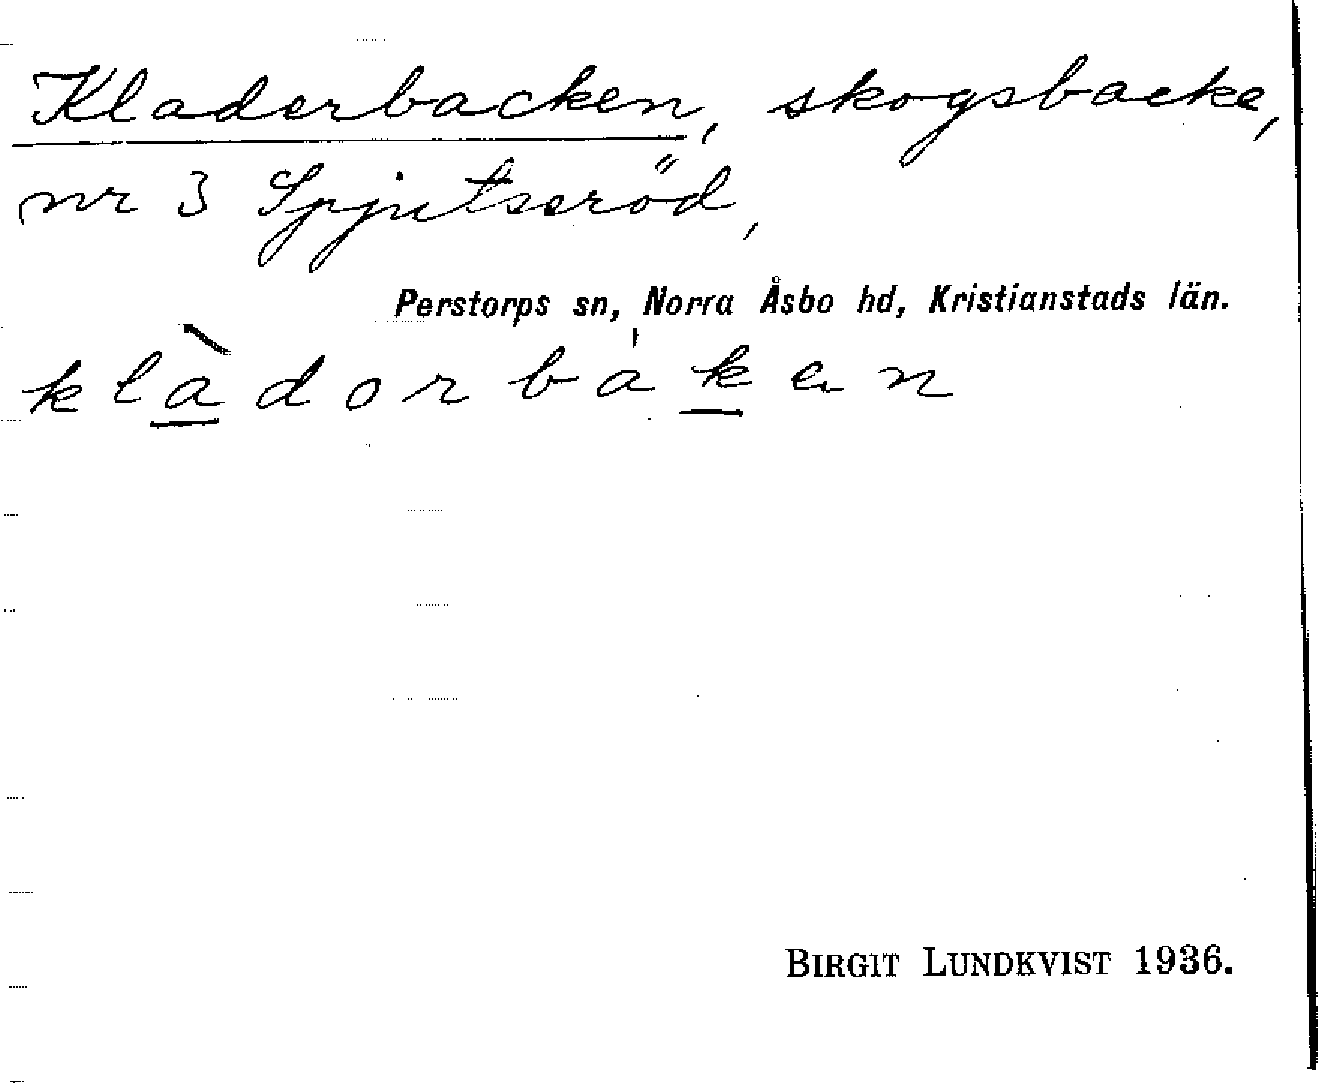 Kladerbacken, skogsbacke,
nr 3 Spjutseröd,
Perstorps sn, Norra Åsbo hd, Kristianstads län.
klàdorbáken
BIRGIT LUNDKVIST 1936.